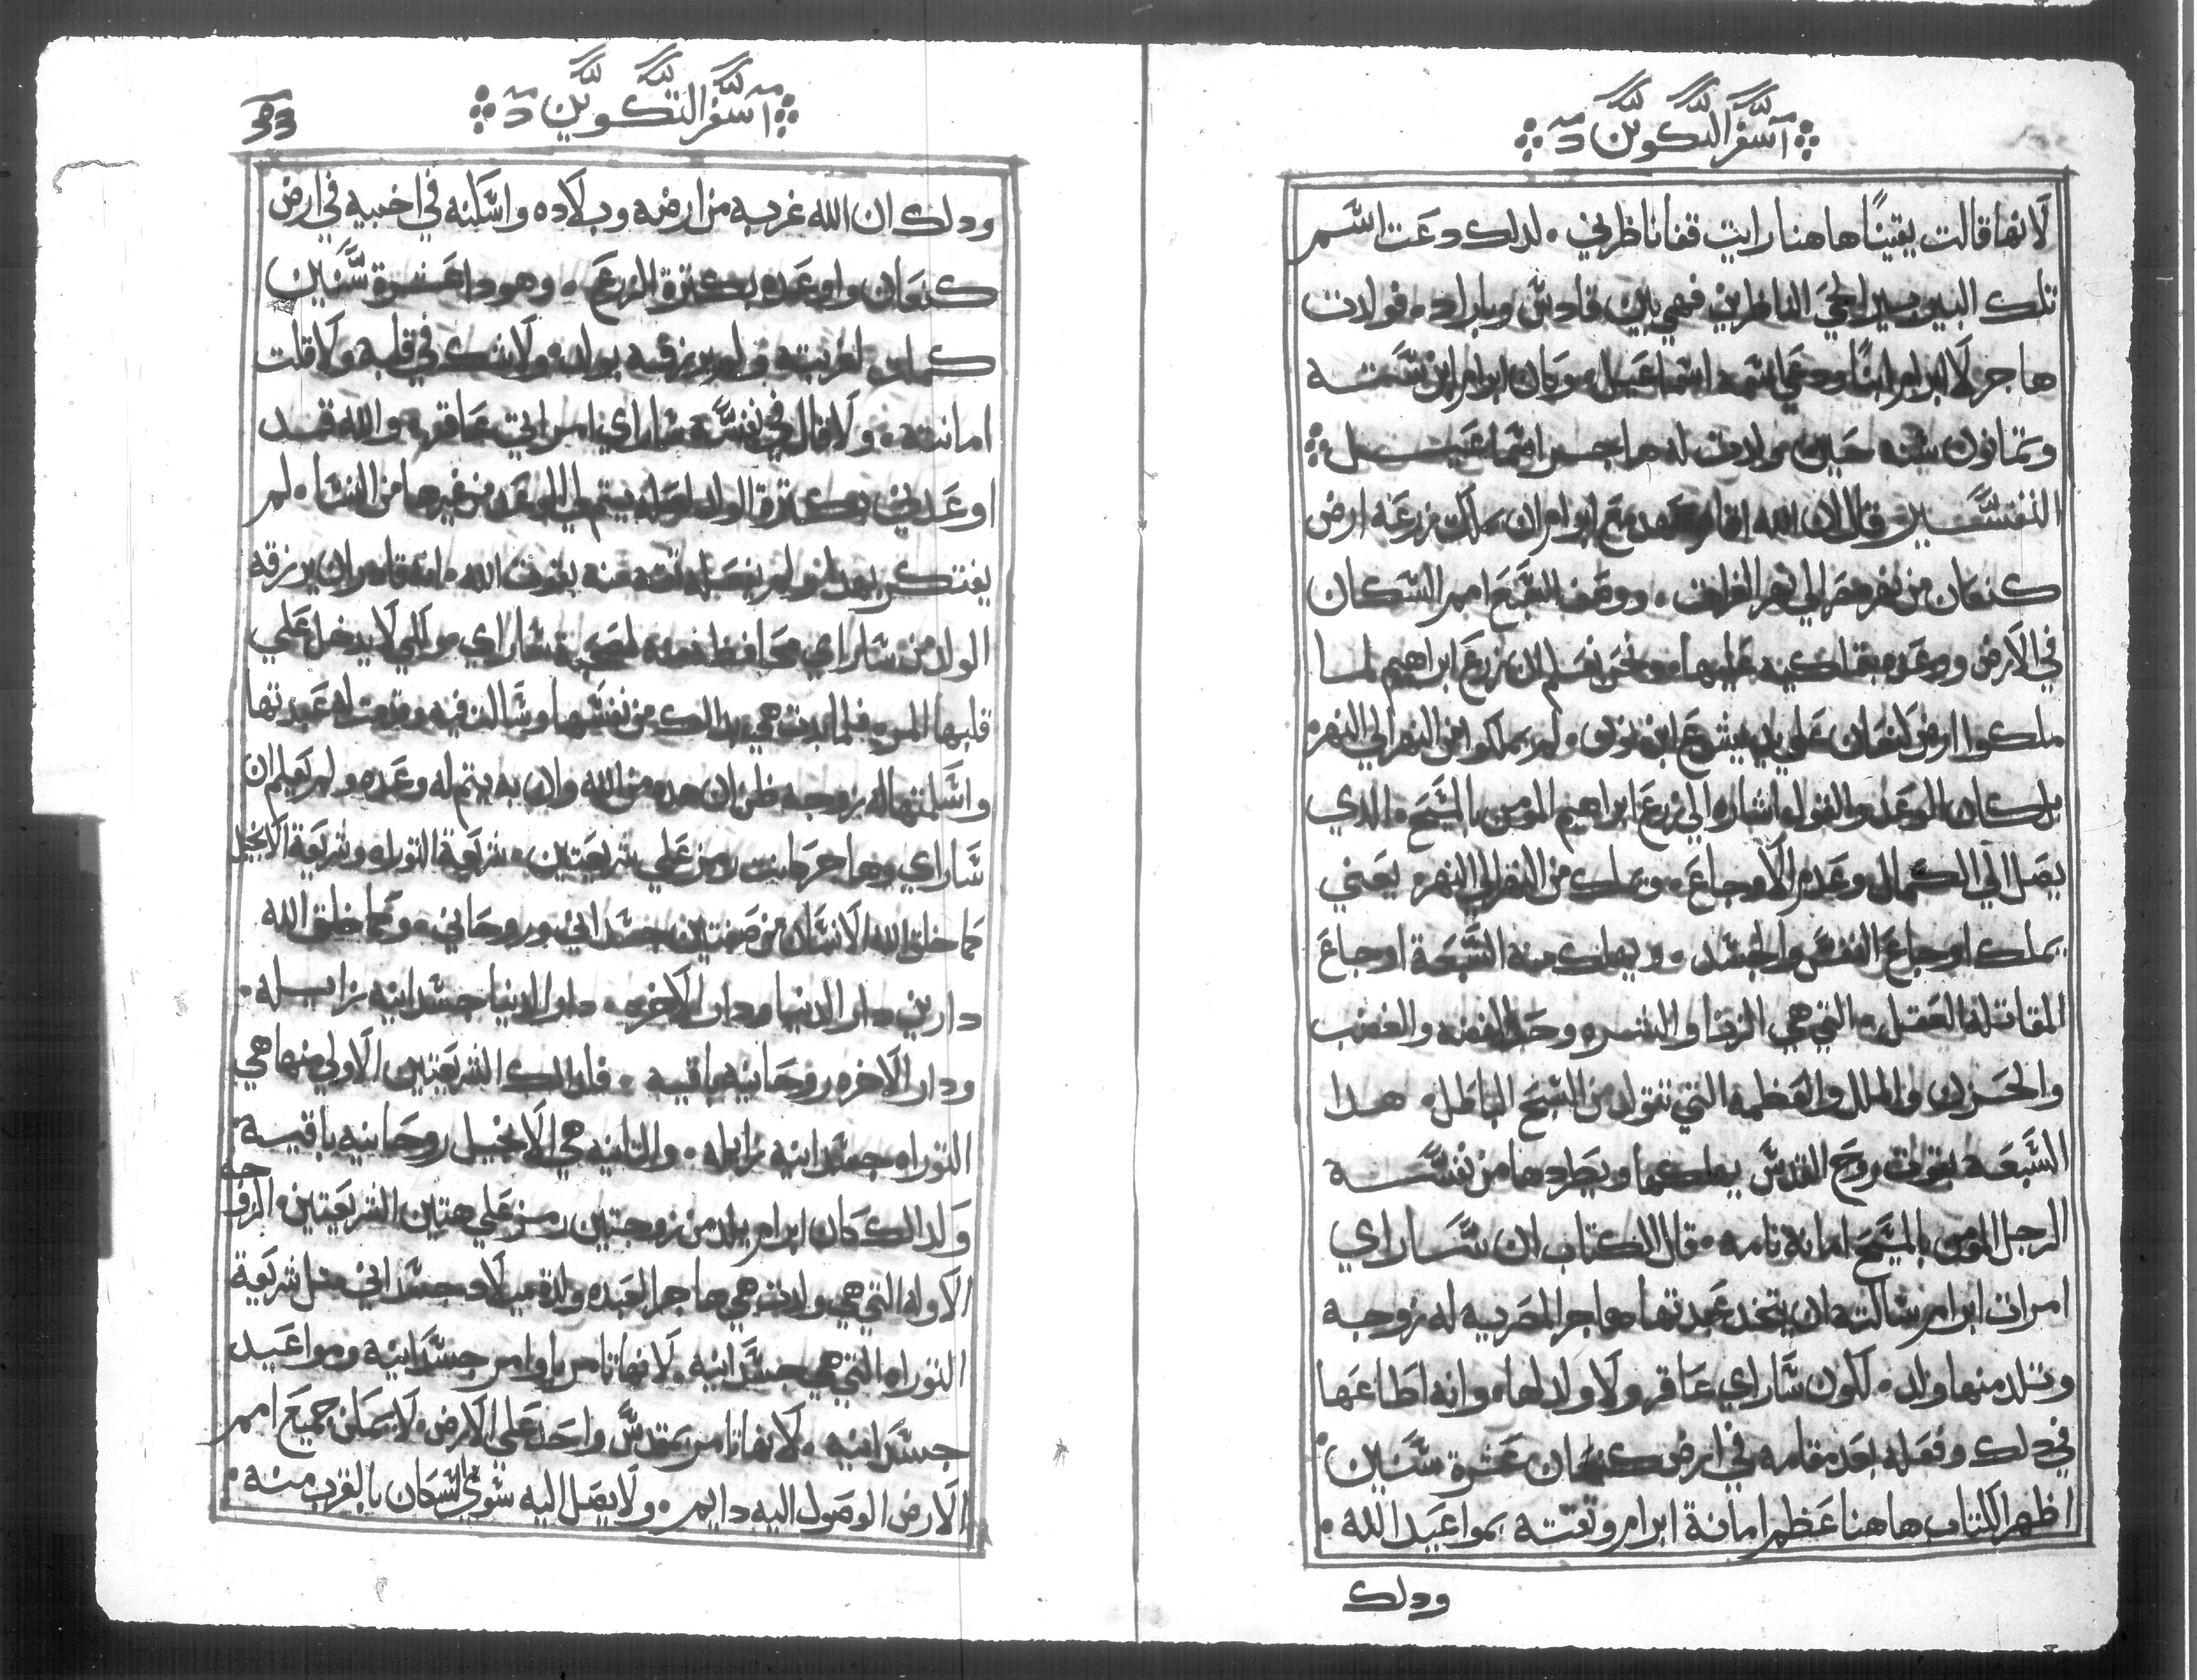 اسفر التكوين د
لانها قالت يقينًا هاهنا رايت قفا ناظرني. لدلك دعت اسم
تلك البير بير الحي الناظرني فهي بين قادس وباراد. فولدت
هاجر لابرام ابنًا ودعي اسمه اسماعيل. وكان ابرام ابن سته
وتمانون سنه حين ولدت له هاجر اسماعيل
التفسير قال ان الله اقام عهد مع ابرام ان يملك زرعه ارض
كنعان من نهر مصر الي نهر الفرات. ووصف السبع امم السكان
في الارض ووعده بتملكيه عليها. ونحن نعلم ان زرع ابراهيم لما
ملكوا ارض كنعان علي يد يشوع ابن نون. لم يملكوا من النهر الي النهر.
بل كان الوعد والقول اشاره الي زرع ابراهيم المومن بالمسيح. الدي
يصل الي الكمال وعدم الاوجاع. ويملك من النهر الي النهر. يعني
يملك اوجاع النفس والجسد. ويملك منه السبعة اوجاع
المقاتلة العقل. التي هي الزنا والشره وحب الفضه والغضب
والحزن والملل والعظمه التي تتولد من السبح الباطل. هدا
السبعه بقوت روح القدس يملكها ويطردها من نفسه
الرجل المومن بالمسيح امانة تامه. قال الكتاب ان ساراي
امرات ابرام سالته ان يتخد عبدتها هاجر المصريه له زوجه
وتلد منها ولد. لكون ساراي عاقر ولا ولد لها. وانه اطاعها
في دلك وفعله بعد مقامه في ارض كنعان عشرة سنين.
اظهر الكتاب هاهنا عظم امانة ابرام وتقته بمواعيد الله.
ودلك
اسفر التكوين د
33
ودلك ان الله غربه من ارضه وبلاده واسكنه في اخبيه في ارض
كنعان واوعده بكترة الزرع. وهودا عشرة سنين
كملو لغربته ولم يرزقه بولد. ولا شك في قلبه ولا قلت
امانته. ولا قال في نفسه ساراي امراتي عاقر. والله قد
اوعدني بكترة الولد لعله يتم لي الوعد من غيرها من النسا. لم
يفتكر بهدا ولم يفعله تقه منه بقوت الله. انه قادر ان يرزقه
الولد من ساراي محافظ منه لمحبة ساراي مو اللي لا يدخل علي
قلبها المره فلما بدت هي بدالك من نفسها وسالت فيه وقدمت له عبدتها
واسلمتها له زوجه ظن ان هده من الله وان به يتم له وعده ولم يعلم ان
ساراي وهاجر كانت رمز علي شريعتين. شريعة التوراه وشريعة الانجيل
كما خلق الله الانسان من صنفتين جسداني وروحاني. وكما خلق الله
دارين دار الدنيا ودار الاخره. دار الدنيا جسدانيه زايله.
ودار الاخره روحانيه باقيه. فلدالك الشريعتين الاولي منها هي
التوراه جسدانيه زايله. والتانيه هي الانجيل روحانيه باقيه.
ولدالك كان ابرام يلد من زوجتين رمز علي هتين الشريعتين. الزوجه
الاوله التي هي ولدت هي هاجر العبده ولدة ميلاد جسداني متل شريعة
التوراه التي هي جسدانيه. لانها تامر باوامر جسدانيه ومواعيد
جسدانيه. لانها تامر بمقدس واحد علي الارض. لا يمكن جميع امم
الارض الوصول اليه دايم. ولا يصل اليه سوي السكان بالقرب منه.